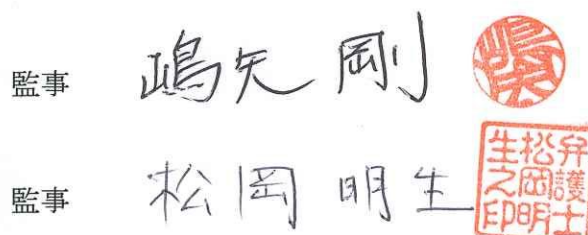 監事 嶋矢 剛
監事 松岡 明生
弁護士
松岡明
生之印